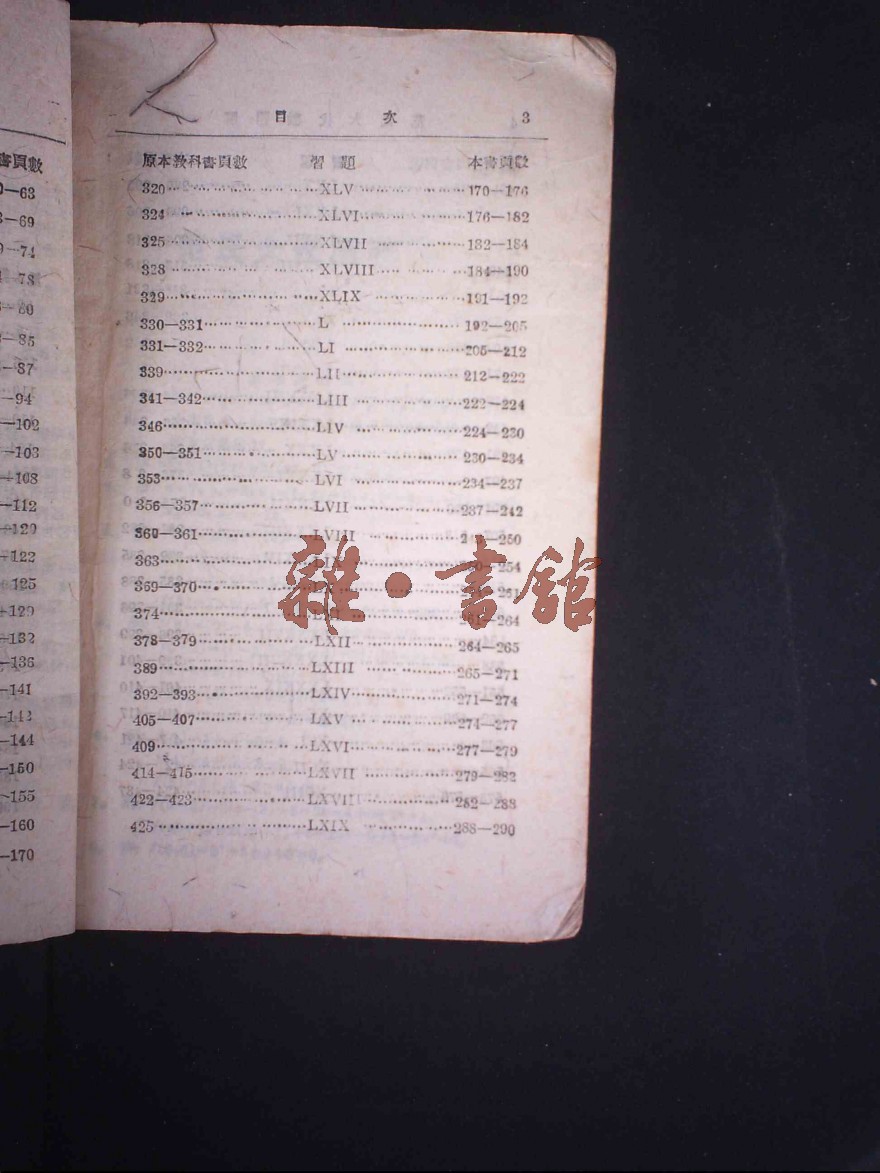 書頁數
—63
—69
—74
—78
—80
—85
—87
—94
—102
—103
—108
—112
—120
—122
—125
—129
—132
—136
—141
—143
—144
—150
—155
—160
—170
目 次 3
原本教科書頁數 習題 本書頁數
320 XLV 170—176
324 XLVI 176—182
325 XLVII 182—184
328 XLVIII 184—190
329 XLIX 191—192
330—331 L 192—205
331—332 LI 205—212
339 LII 212—222
341—342 LIII 222—224
346 LIV 224—230
350—351 LV 230—234
353 LVI 234—237
356—357 LVII 237—242
360—361 LVIII —250
363 LIX —254
369—370 LX
374 —264
378—379 LXII 264—265
389 LXIII 265—271
392—393 LXIV 271—274
405—407 LXV 274—277
409 LXVI 277—279
414—415 LXVII 279—282
422—423 LXVIII 282—288
425 LXIX 288—290
雜·書館